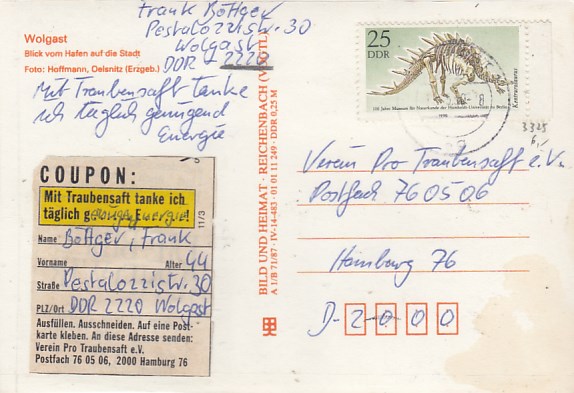 Frank Böttger
Pestalozzistr. 30
Wolgast
DDR 2220
Wolgast
Blick vom Hafen auf die Stadt
Foto: Hoffmann, Oelsnitz (Erzgeb.)
Mit Traubensaft tanke
ich täglich genügend
Energie
COUPON:
Mit Traubensaft tanke ich
täglich genug Energie!
11/3
Name Böttger, Frank
Vorname Alter 44
Straße Pestalozzistr. 30
PLZ/Ort DDR 2220 Wolgast
Ausfüllen. Ausschneiden. Auf eine Post-
karte kleben. An diese Adresse senden:
Verein Pro Traubensaft e.V.
Postfach 76 05 06, 2000 Hamburg 76
BILD UND HEIMAT · REICHENBACH (VOGTL)
A 1/B 71/87 · IV-14-483 · 01 01 11 249 · DDR 0,25 M
25
DDR
Kentrurosaurus
100 Jahre Museum für Naturkunde der Humboldt-Universität zu Berlin
1990
3325
6,-
Verein Pro Traubensaft e.V.
Postfach 760506
Hamburg 76
D-2000